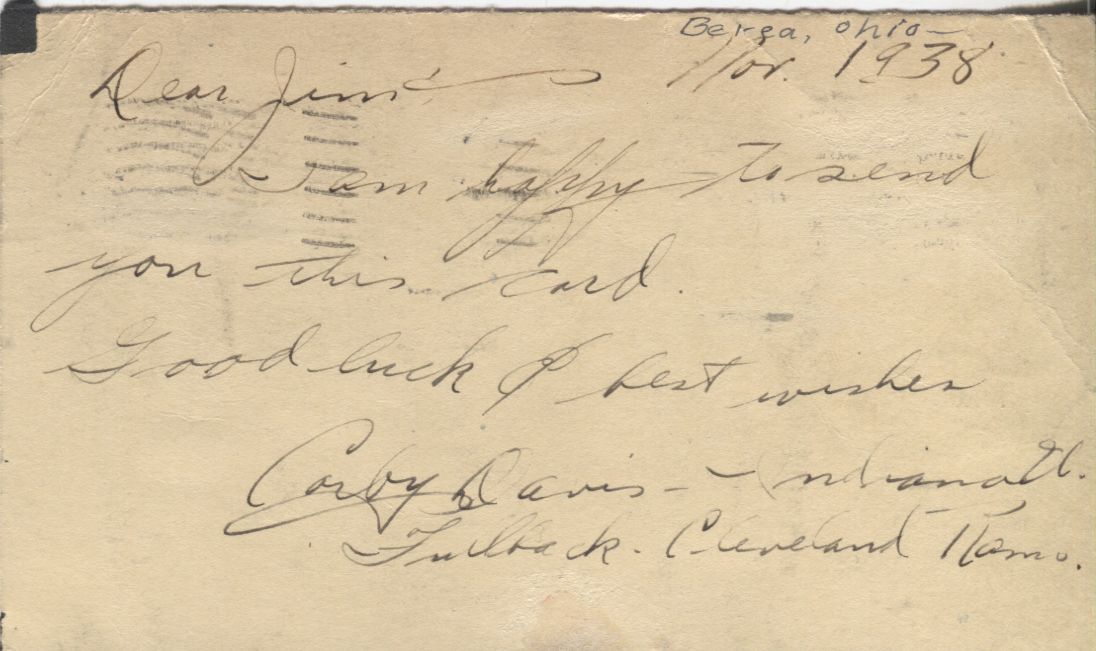 Berea, Ohio-
Nov. 1938
Dear Jim:
I am happy to send
you this card.
Good luck & best wishes
Corby Davis - Indiana U.
Fullback. Cleveland Rams.